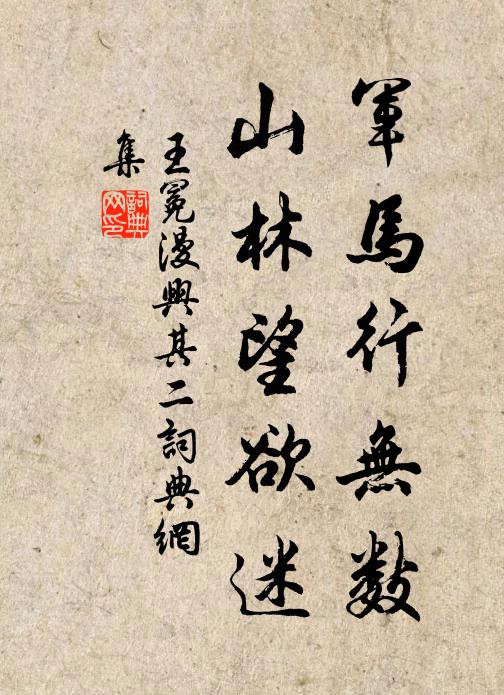 軍馬行無數
山林望欲迷
王冕漫興其二詞典網
集
詞典
网印